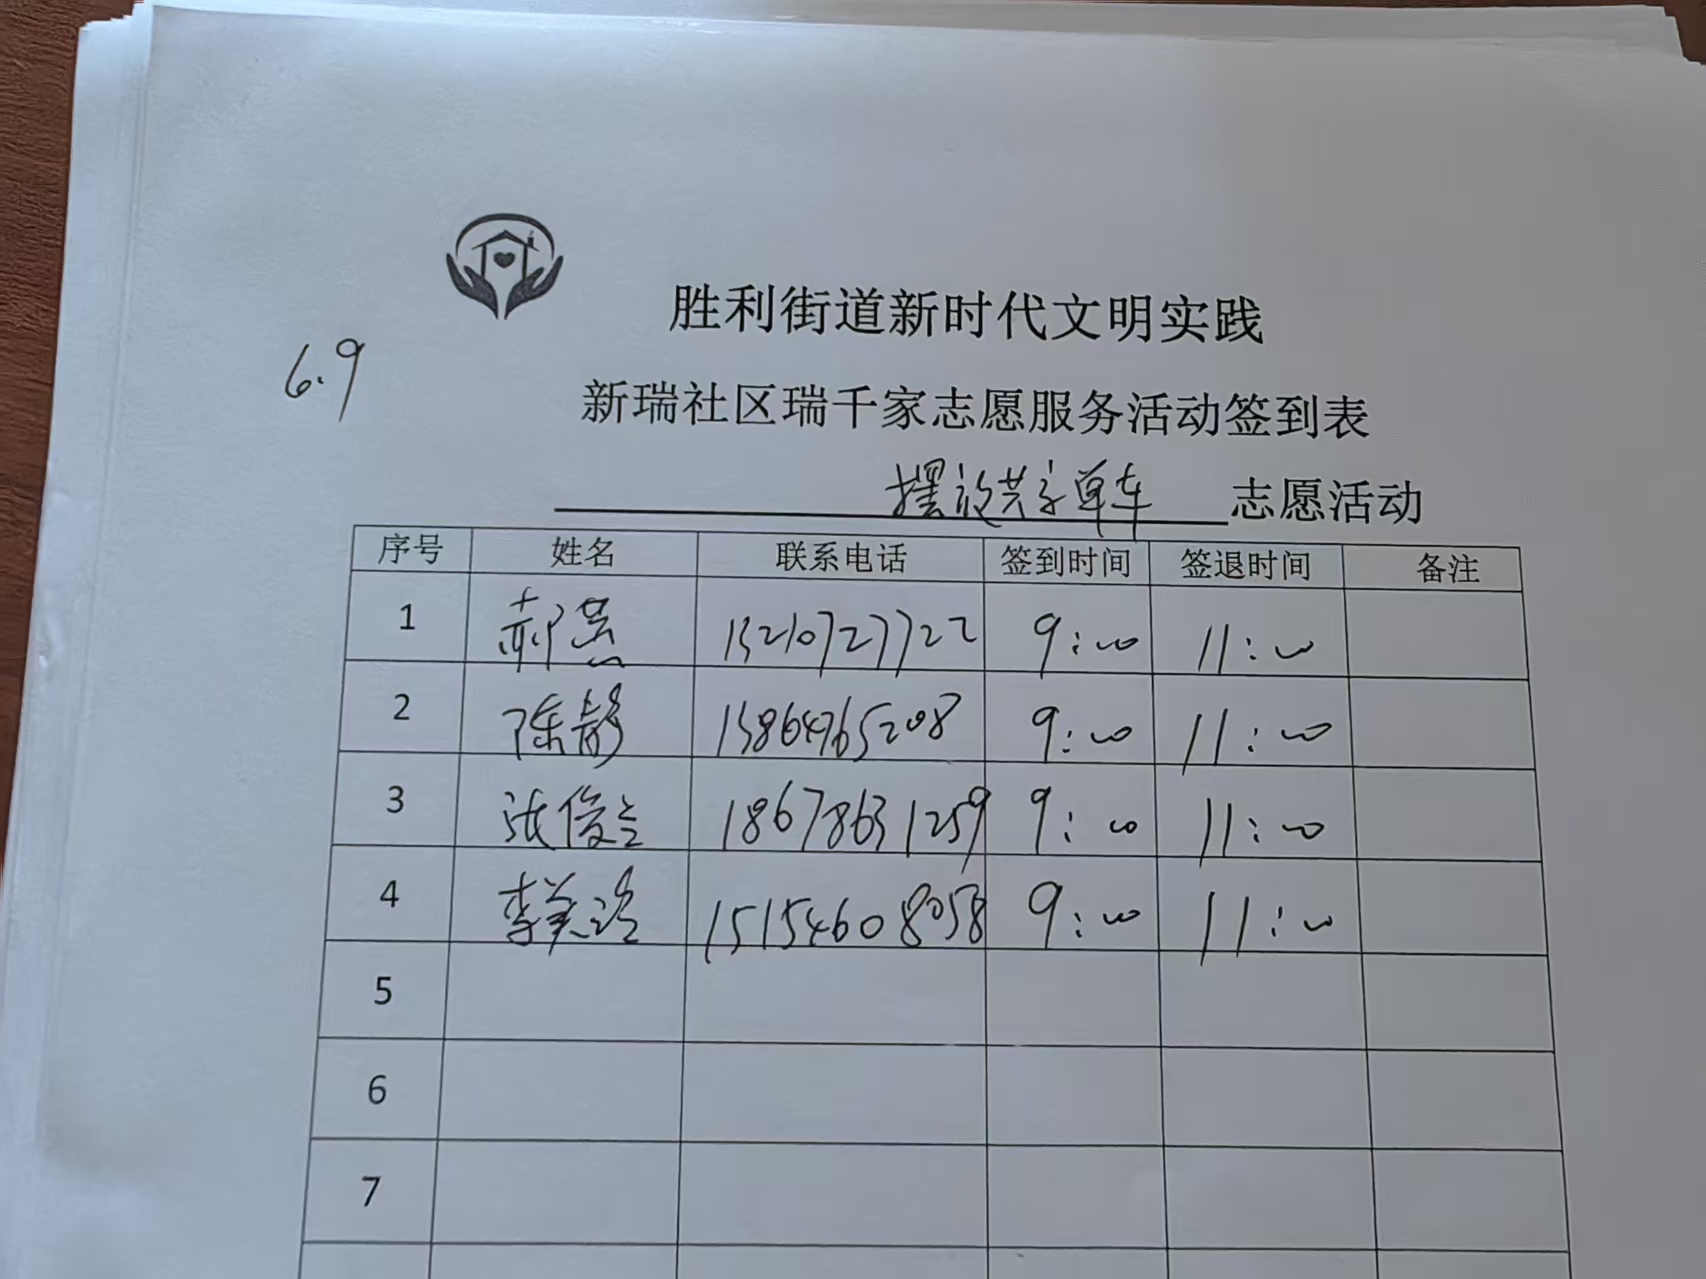 胜利街道新时代文明实践
6.9
新瑞社区瑞千家志愿服务活动签到表
摆放共享单车 志愿活动
序号 姓名 联系电话 签到时间 签退时间 备注
1 郝燕 15210727722 9:00 11:00
2 陈静 13864765208 9:00 11:00
3 张俊兰 18678631259 9:00 11:00
4 李美玲 15154608058 9:00 11:00
5
6
7